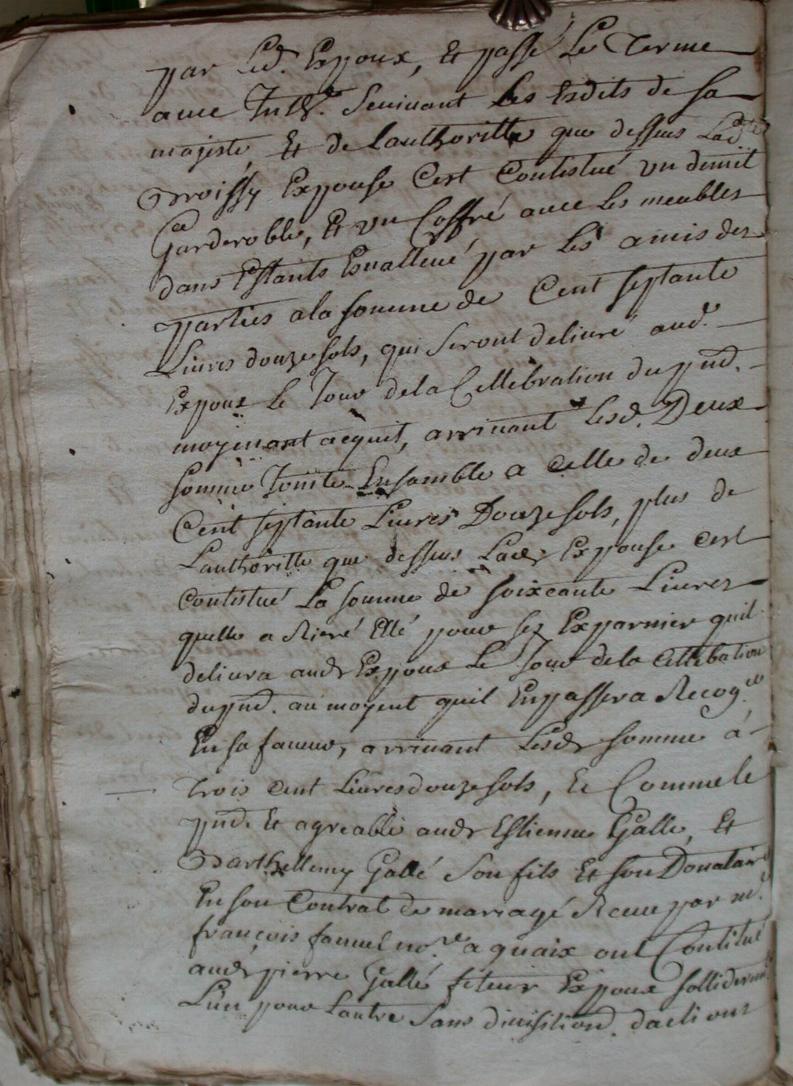 par led. Expoux, Et passé Le Terme
avec Inth. Suivant Les Esdits de sa
majesté, Et de Lauthoritte que dessus Lad.te
Expouse Cest Contistué un demit
Garderobbe, Et un Coffré avec les meubles
dans Estants Esvallué par les amis des
parties a la somme de Cent septante
Livres douze sols, qui seront delivré aud.
Expoux Le Jour de la Cellebration du pnd.
moyenant acquit, arrivant Lesd. Deux
somme Jointe Ensamble a Celle de deux
Cent septante Livres Douze sols, plus de
Lauthoritte que dessus Expouse Cest
Contistué La somme de soixcante Livres
quelle a Rieré Ellé pour ses Exparnier quil
delivra audt Expoux Le Jour de la
du pnd. au moyent quil Enpassera Recog.ce
En sa faveur, arrivant somme à
trois cent Livres douze sols, Et Comme le
pnd. Et agreable audt Estienne Gallé, Et
Barthellemy Gallé Son fils Et Son Donataire
En son Contrat de mariagé Receu par m.e
françois no.re a quaix ont Contitué
audt pierre Gallé futeur Expoux sollidermt
L'un pour Lautre Sans divisition dactions